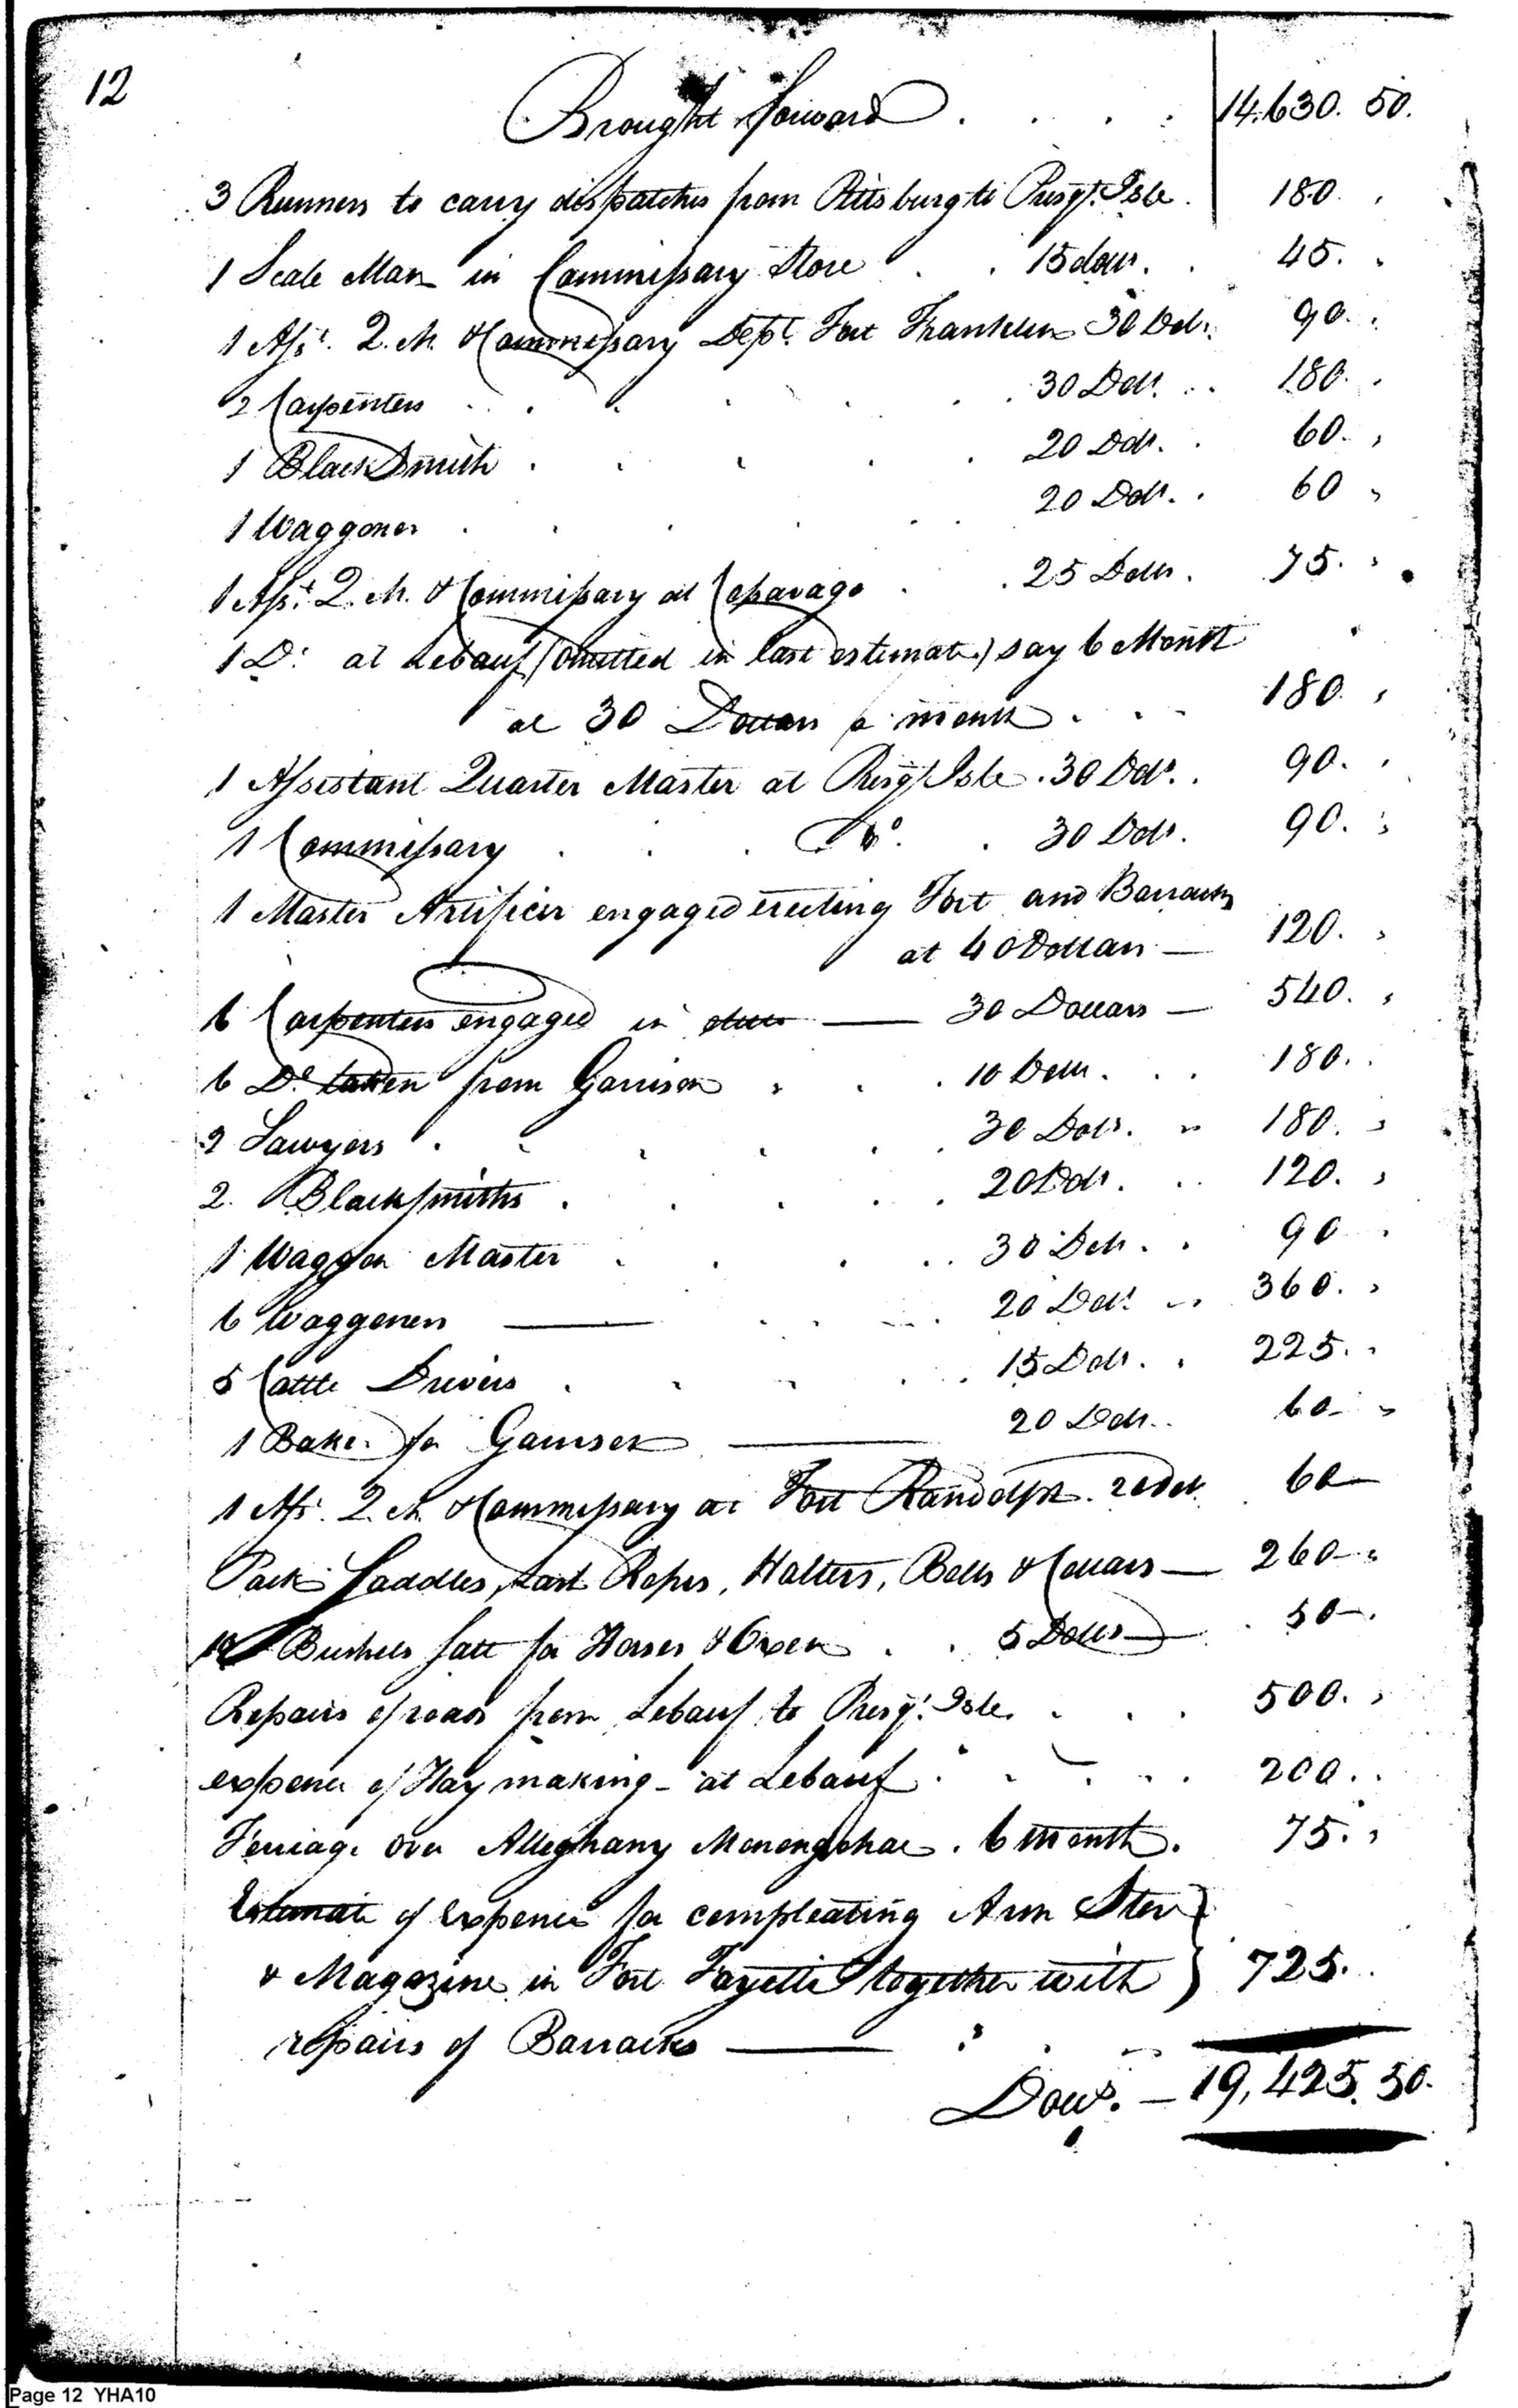 12
Brought forward . . . . 14.630. 50.
3 Runners to carry dispatches from Pittsburg to Presq. Isle . 180. ,
1 Scale Man in Commissary Store . . 15 dolls. . 45. ,
1 Asst. Q. M. & Commissary Dept. Fort Franklin 30 Dols. 90. ,
2 Carpenters . . . . 30 Dols. . . 180. ,
1 Black Smith . . . . . 20 Dols. . 60. ,
1 Waggoner . . . . . 20 Dols. . 60 ,
1 Asst. Q. M. & Commissary at . . 25 Dolls. 75. ,
1 Do. at Lebauf (omitted in last estimate) say 6 Month
at 30 Dollars a month . . . 180. ,
1 Assistant Quarter Master at Presq. Isle . 30 Dols. . 90. ,
1 Commissary . . . Do. . 30 Dols. 90. ,
1 Master Artificer engaged erecting Fort and Barracks
at 40 Dollars — 120. ,
6 Carpenters engaged in ditto — 30 Dollars — 540. ,
6 Do. taken from Garrison . . . 10 Dolls. . . 180. .
2 Sawyers . . . . . 30 Dols. " 180. ,
2. Blacksmiths . . . . . 20 Dols. . . 120. ,
1 Waggon Master . . . . . 30 Dols. . . 90 .
6 Waggoners — . . . 20 Dols. . . 360. ,
5 Cattle Drivers . . . . . 15 Dols. . 225. .
1 Baker for Garrison — 20 Dols. . 60 - ,
1 Asst. Q. M. & Commissary at Fort Randolph . 20 dols. 60 —
Pack Saddles, Lash Ropes, Halters, Bells & Collars — 260 - ,
10 Bushels salt for Horses & Oxen . . 5 Dolls — . 50 - .
Repairs of roads from Lebauf to Presq. Isle . . . . 500. ,
expence of Hay making - at Lebauf . . . . . 200. .
Ferriage over Alleghany Monongohae . 6 month . 75. ,
Estimate of expence for compleating Arm Store }
& Magazine in Fort Fayette together with } 725. .
repairs of Barracks —
Dolls. — 19,425. 50.
Page 12 YHA10